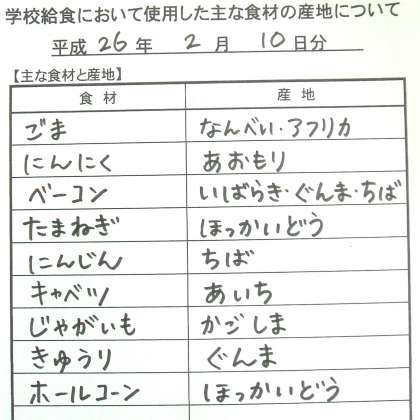 学校給食において使用した主な食材の産地について
平成 26 年 2 月 10 日分
【主な食材と産地】
食材 産地
ごま なんべい・アフリカ
にんにく あおもり
ベーコン いばらき・ぐんま・ちば
たまねぎ ほっかいどう
にんじん ちば
キャベツ あいち
じゃがいも かごしま
きゅうり ぐんま
ホールコーン ほっかいどう